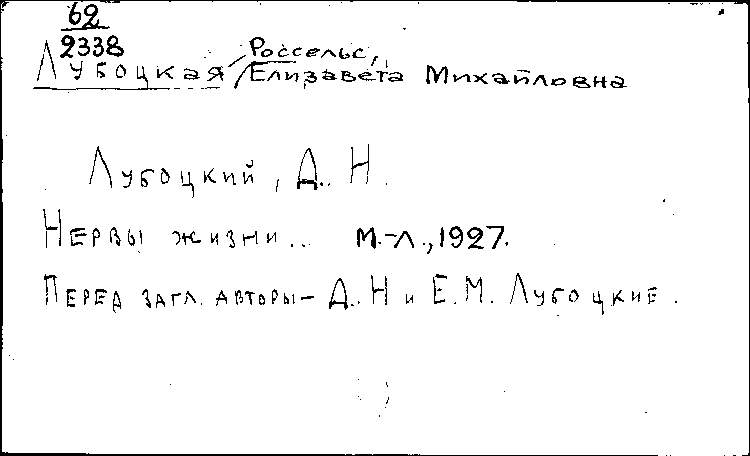 62
2338
Лубоцкая-Россельс,
Елизавета Михайловна
Лубоцкий, Д. Н.
Нервы жизни... М.-Л., 1927.
Перед загл. авторы - Д. Н и Е. М. Лубоцкие.